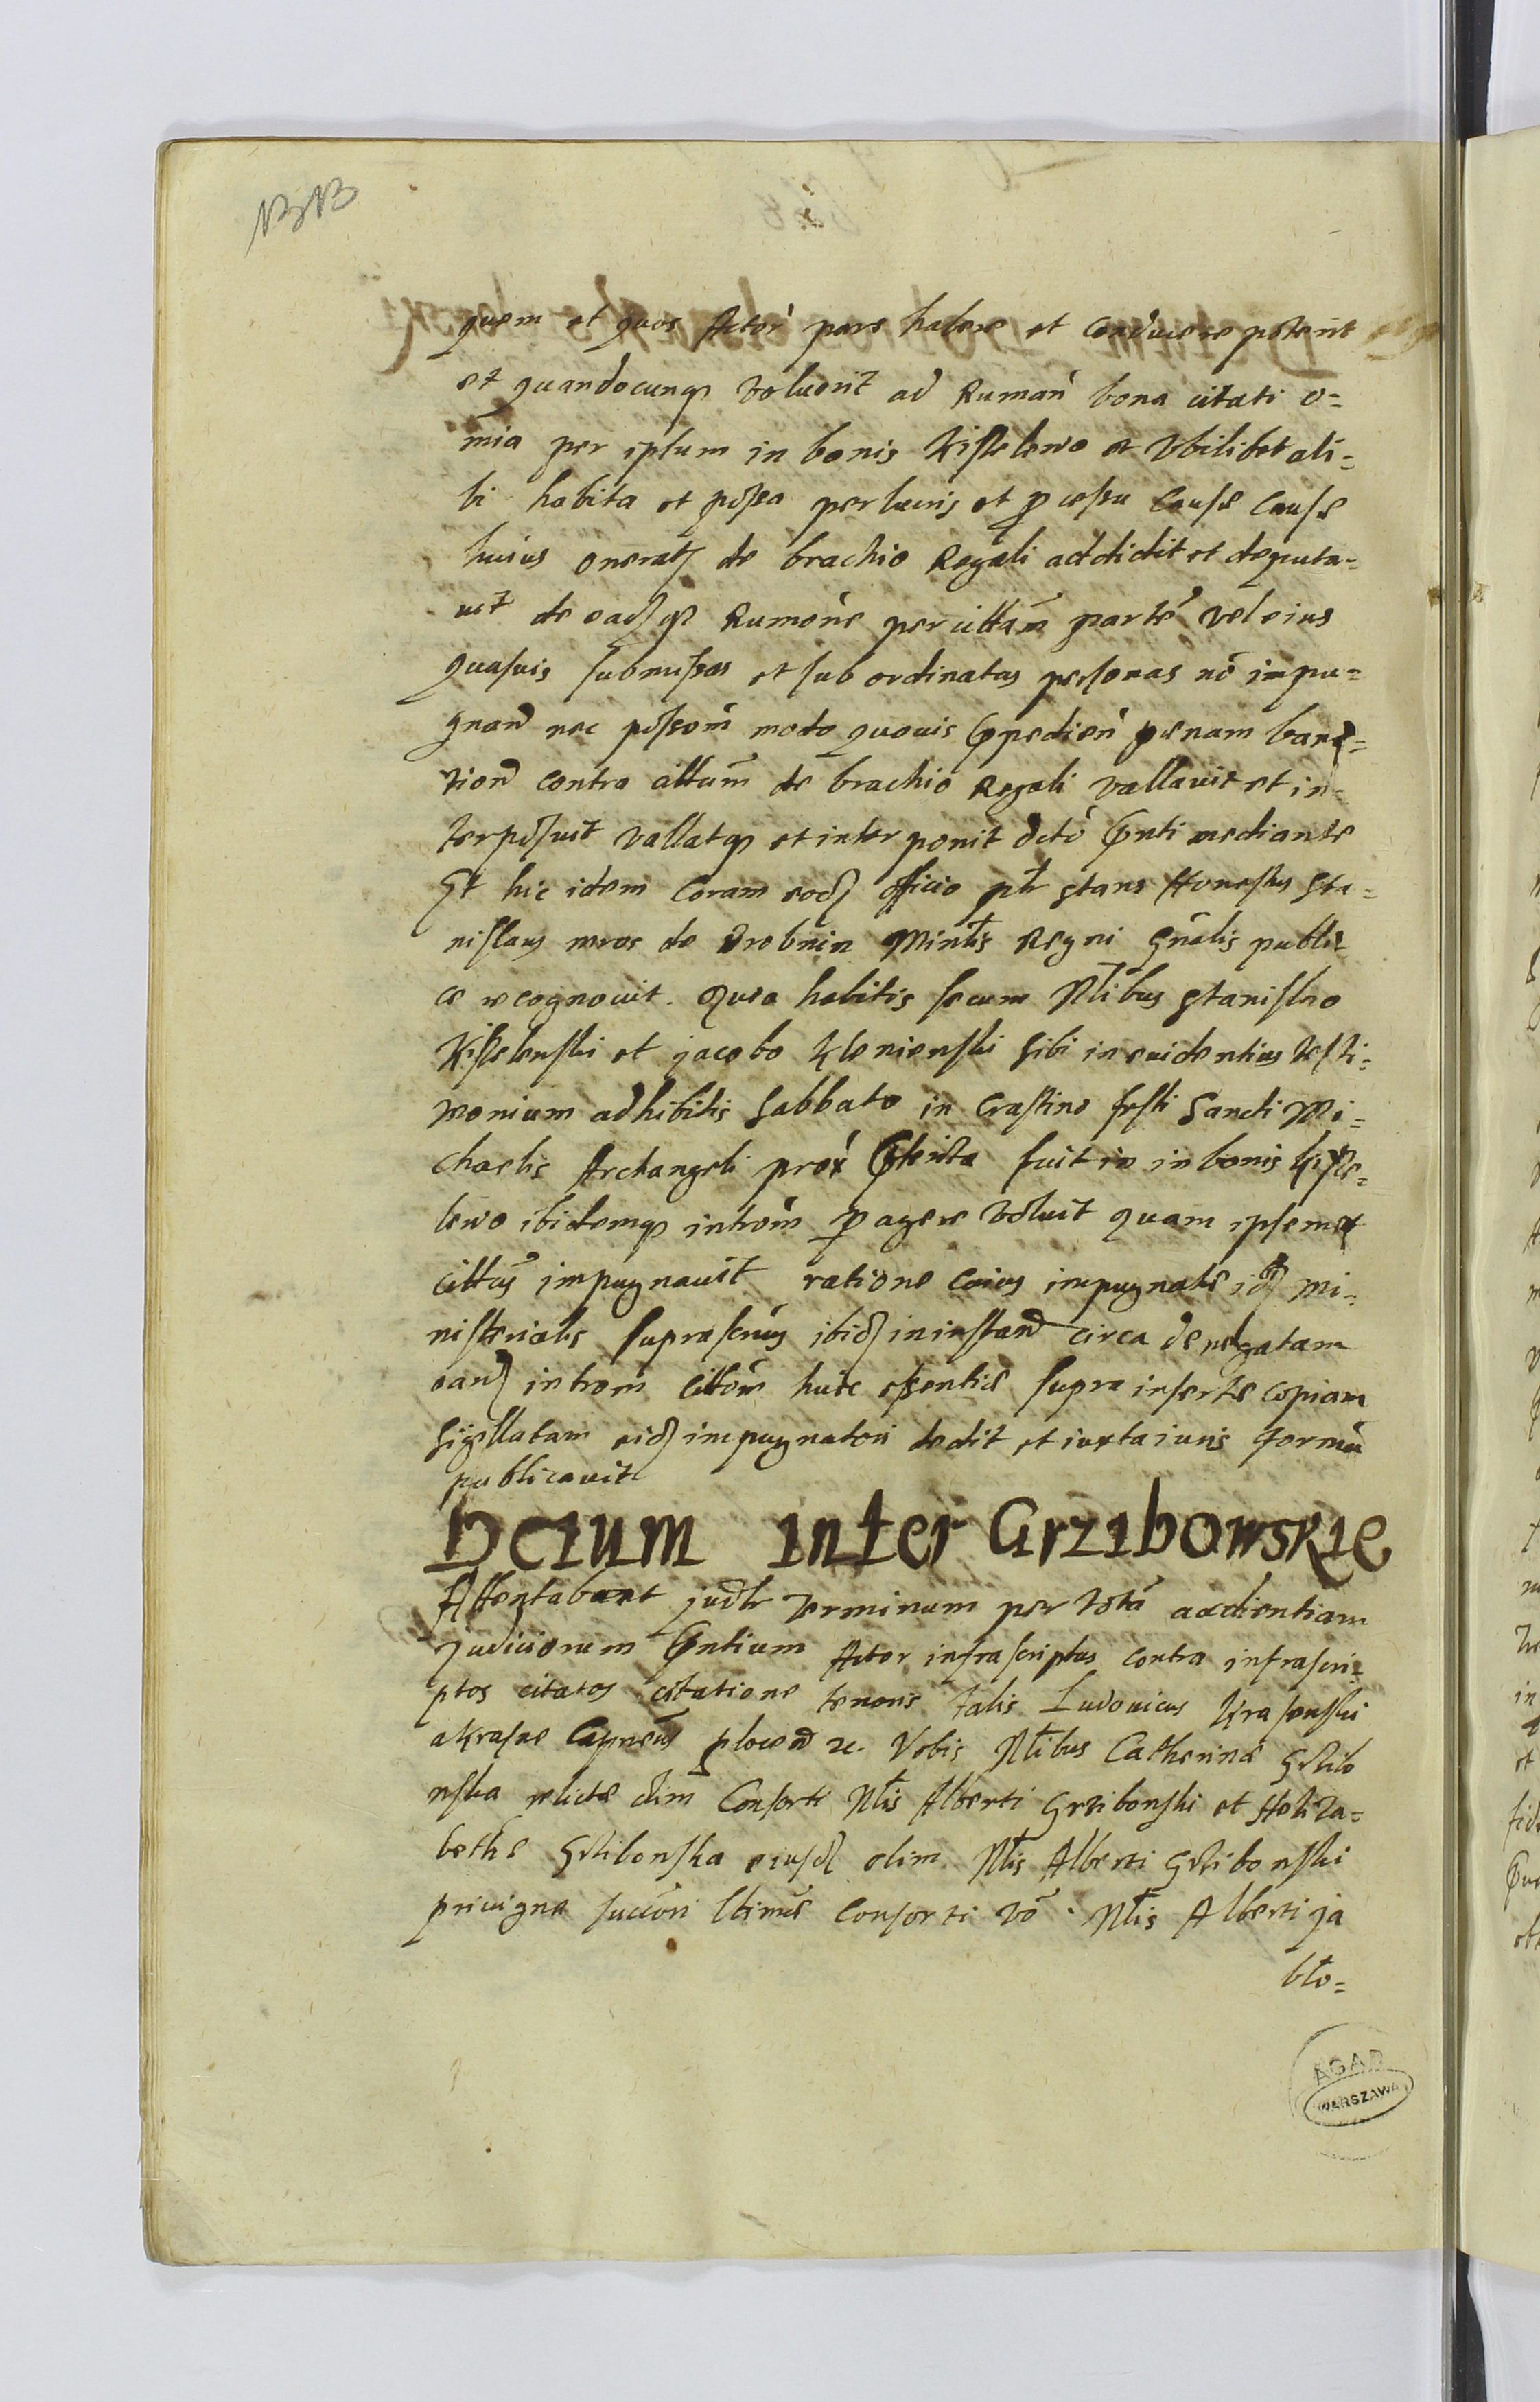 quem et quos Actor pars habere et conducere poterit
et quandocunq voluerit ad Ruman bona citati o=
mia per ipsum in bonis Kisselewo et Vbilibet ali=
bi habita et possa per lucris et processu Cause Cause
huius onerat de brachio Regali addidit et deputa=
uit de eadq Rumone per cittam parte vel eius
quasuis submissas et sub ordinatas personas no impu=
gnand nec possom modo quouis expedien penam ban=
niond contra cittum de brachio Regali vallauit et in=
terposuit vallatq et inter ponit dcto pnti mediante
Et hic idem Coram eod officio ptr stans Honestus Sta=
nislaus mros de Drobnin Mintis Regni Gnalis publi=
ce recognouit. Quia habitis secum Nlibus Stanislao
Kisselewski et jacobo Kleniewski sibi in euidentius testi=
monium adhibitis Sabbato in Crastino festi Sancti Mi=
chaelis Archangeli prox pterita fuit in in bonis Kisse=
lewo ibidemq introm p agere voluit quam ipsemet
cittus impugnauit ratione cuius impugnatie id mi=
nisterialis suprascrius ibid in instand circa denegatam
eand introm cittom huic essentie supra inserte copiam
Sigillatam eid impugnatori dedit et iuxta iuris formam
publicauit
Dctum inter Grzibowskie
Attentabant judtr terminum per tota audientiam
judiciorum pntium Actor infrascriptus contra infrascri=
ptos citatos citatione tenoris talis Ludouicus Krasenski
a Krasne Capneus plocen 2c. Vobis Nlibus Catherinae Grzibo
wska relicte olim Consorti Nlis Alberti Grzibowski et Heliza=
bethe Grzibowska eiusd olim Nlis Alberti Grzibowski
priuigna succori ltime consorti vo. Nlis Alberti Ja
bło=
AGAD
WARSZAWA